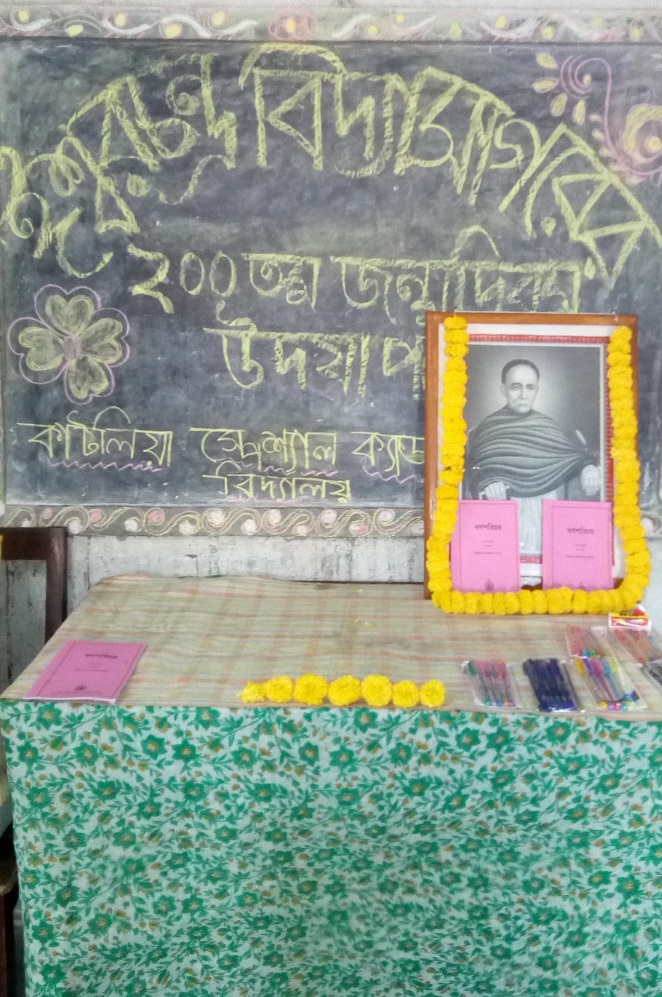 ঈশ্বরচন্দ্র বিদ্যাসাগরের
২০০তম জন্মদিবস
উদযাপ
কাটলিয়া স্পেশ্যাল ক্যাড
বিদ্যালয়
বর্ণপরিচয় বর্ণপরিচয়
বর্ণপরিচয়